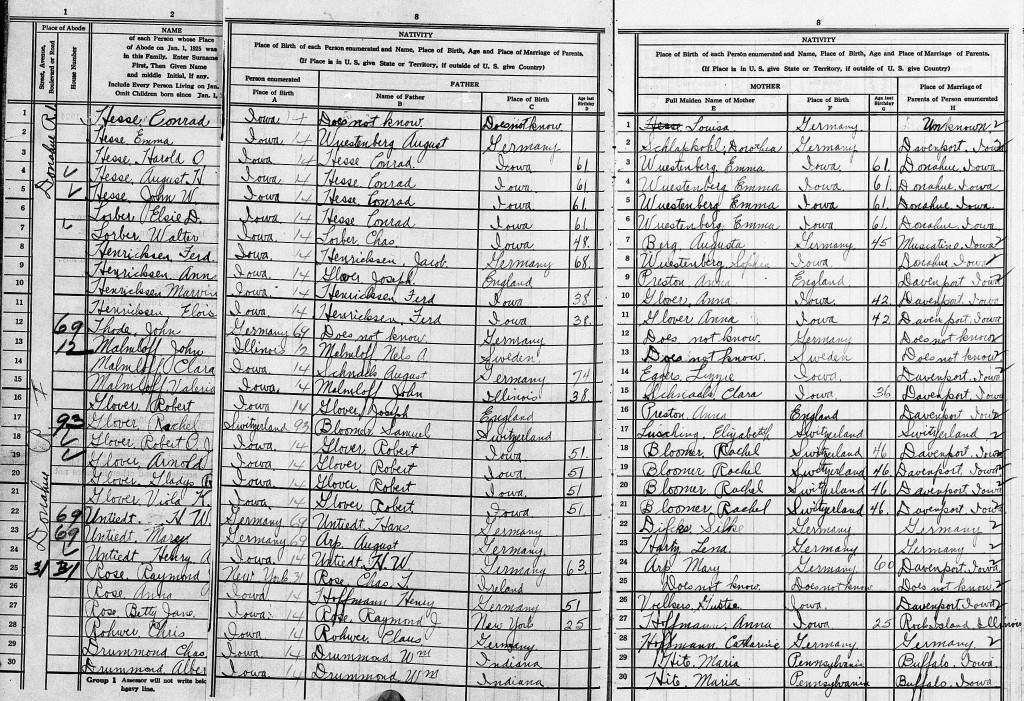 1
2
8
8
Place of Abode
NAME
of each Person whose Place of Abode on Jan. 1, 1925 was in this Family. Enter Surname First, Then Given Name and middle Initial, if any. Include Every Person Living on Jan. Omit Children born since Jan. 1,
Street, Avenue, Boulevard or Road
House Number
NATIVITY
Place of Birth of each Person enumerated and Name, Place of Birth, Age and Place of Marriage of Parents.
(If Place is in U. S. give State or Territory, if outside of U. S. give Country)
Person enumerated
FATHER
Place of Birth A
Name of Father B
Place of Birth C
Age last Birthday D
NATIVITY
Place of Birth of each Person enumerated and Name, Place of Birth, Age and Place of Marriage of Parents.
(If Place is in U. S. give State or Territory, if outside of U. S. give Country)
MOTHER
Full Maiden Name of Mother E
Place of Birth F
Age last Birthday G
Place of Marriage of Parents of Person enumerated H
Donahue R1
1 Hesse Conrad Iowa 14 Does not know. Does not know 1 Louisa Germany Unknown 2
2 Hesse Emma Iowa 14 Wuestenberg August Germany 2 Schlapkohl, Dorothea Germany Davenport, Iowa
3 Hesse, Harold O Iowa 14 Hesse Conrad Iowa 61 3 Wuestenberg Emma Iowa 61. Donahue, Iowa
4 Hesse, August H Iowa 14 Hesse Conrad Iowa 61 4 Wuestenberg Emma Iowa 61. Donahue, Iowa
5 Hesse John W Iowa 14 Hesse Conrad Iowa 61. 5 Wuestenberg Emma Iowa 61. Donahue Iowa
6 Lorber Elsie D. Iowa 14 Hesse Conrad Iowa 61. 6 Wuestenberg, Emma Iowa 61. Donahue Iowa
7 Lorber Walter Iowa 14 Lorber Chas. Iowa 48. 7 Berg, Augusta Germany 45 Muscatine, Iowa 2
8 Henricksen Ferd. Iowa. 14 Henricksen, Jacob. Germany 68. 8 Wuestenberg, Sophia Iowa Donahue Iowa
9 Henricksen, Ann Iowa 14 Glover Joseph England 9 Preston Anna England Davenport Iowa 2
10 Henricksen Marvin Iowa 14 Henricksen Ferd Iowa 38 10 Glover, Anna. Iowa. 42 Davenport Iowa
11 Henricksen, Elois Iowa 14 Henricksen, Ferd Iowa 38. 11 Glover Anna Iowa. 42 Davenport Iowa
12 69 Thode, John Germany 69 Does not know. Germany 12 Does not know. Germany Does not know 2
13 12 Malmloff John Illinois 12 Malmloff Nels A. Sweden 13 Does not know. Sweden Does not know 2
14 Malmloff Clara Iowa 14 Schnack August Germany 74 14 Eggers, Linnie Iowa. Davenport, Iowa 2
15 Malmloff Valeria Iowa 14 Malmloff John Illinois 38. 15 Schnack, Clara Iowa 36 Davenport, Iowa
16 Glover, Robert Iowa 14 Glover, Joseph England 16 Preston, Anna England Davenport Iowa 2
17 93 Glover, Rachel Switzerland 93 Bloomer Samuel Switzerland 17 Elizabeth Switzerland Switzerland 2
18 Glover Robert O. J Iowa. 14 Glover Robert Iowa 51. 18 Bloomer, Rachel Switzerland 46 Davenport, Iowa
19 Glover, Arnold Iowa 14 Glover, Robert Iowa 51 19 Bloomer Rachel Switzerland 46 Davenport, Iowa
20 Glover, Gladys R Iowa. 14 Glover, Robert Iowa. 51 20 Bloomer, Rachel Switzerland 46. Davenport, Iowa
21 Glover Viola K. Iowa 14 Glover Robert Iowa 51 21 Bloomer, Rachel Switzerland 46. Davenport, Iowa
Donahue R I
22 69 Untiedt H W. Germany 69 Untiedt Hans Germany 22 Germany Germany 2
23 69 Untiedt, Mary. Germany 69 Arp, August Germany 23 Lena Germany Germany 2
24 Untiedt Henry A Iowa. 14 Untiedt, H. W. Germany 63. 24 Arp, Mary Germany 60 Davenport, Iowa
25 31 31 Rose, Raymond J New York 31 Rose, Chas. T. Ireland 25 Does not know. Does not know Does not know. 2
26 Rose Anna Iowa 14 Hoffmann Henry Germany 51 26 Vollsers, Gustie Iowa. Davenport, Iowa 2
27 Rose Betty Jane. Iowa. 14 Rose, Raymond J New York 25 27 Hoffmann, Anna Iowa 25 Rock Island, Illinois
28 Rohwer Chris Iowa 14 Rohwer Claus Germany 28 Hoffmann Catharine Germany Germany 2
29 Drummond Chas. Iowa 14 Drummond Wm Indiana 29 Hite, Maria Pennsylvania Buffalo. Iowa.
30 Drummond Alber Iowa 14 Drummond Wm Indiana 30 Hite, Maria Pennsylvania Buffalo, Iowa
Group 1 Assessor will not write below heavy line.